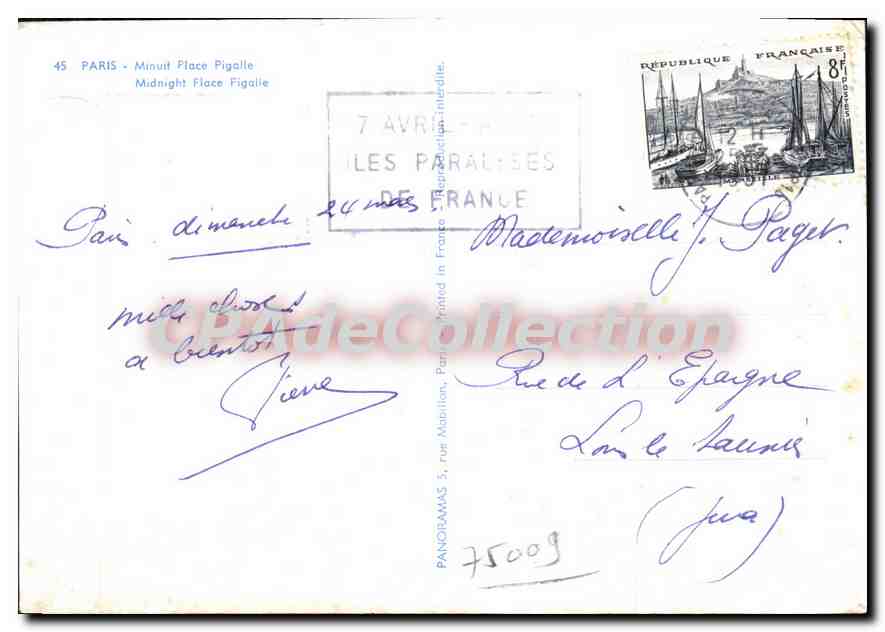 45 PARIS - Minuit Place Pigalle
Midnight Place Pigalle
RÉPUBLIQUE FRANÇAISE
8F
POSTES
7 AVRIL
LES PARALYSES
DE FRANCE
Paris dimanche 24 mars.
mille choses
a bientôt
Pierre
Mademoiselle J. Paget.
Rue de L'Epargne
Lons le Saunier
(Jura)
75009
PANORAMAS 5, rue Mabillon, Paris Printed in France Reproduction interdite.
CPAdeCollection